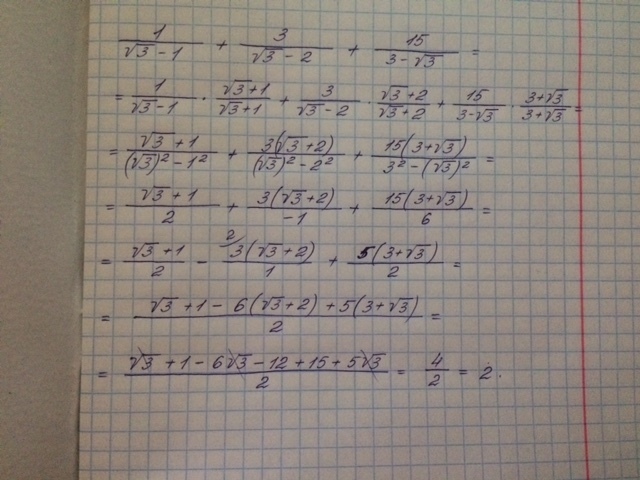 1/(√3 - 1) + 3/(√3 - 2) + 15/(3 - √3) =
= 1/(√3 - 1) · (√3 + 1)/(√3 + 1) + 3/(√3 - 2) · (√3 + 2)/(√3 + 2) + 15/(3 - √3) · (3 + √3)/(3 + √3) =
= (√3 + 1)/((√3)² - 1²) + 3(√3 + 2)/((√3)² - 2²) + 15(3 + √3)/(3² - (√3)²) =
= (√3 + 1)/2 + 3(√3 + 2)/(-1) + 15(3 + √3)/6 =
= (√3 + 1)/2 - ²⁄ 3(√3 + 2)/1 + 5(3 + √3)/2 =
= (√3 + 1 - 6(√3 + 2) + 5(3 + √3))/2 =
= (√3 + 1 - 6√3 - 12 + 15 + 5√3)/2 = 4/2 = 2.